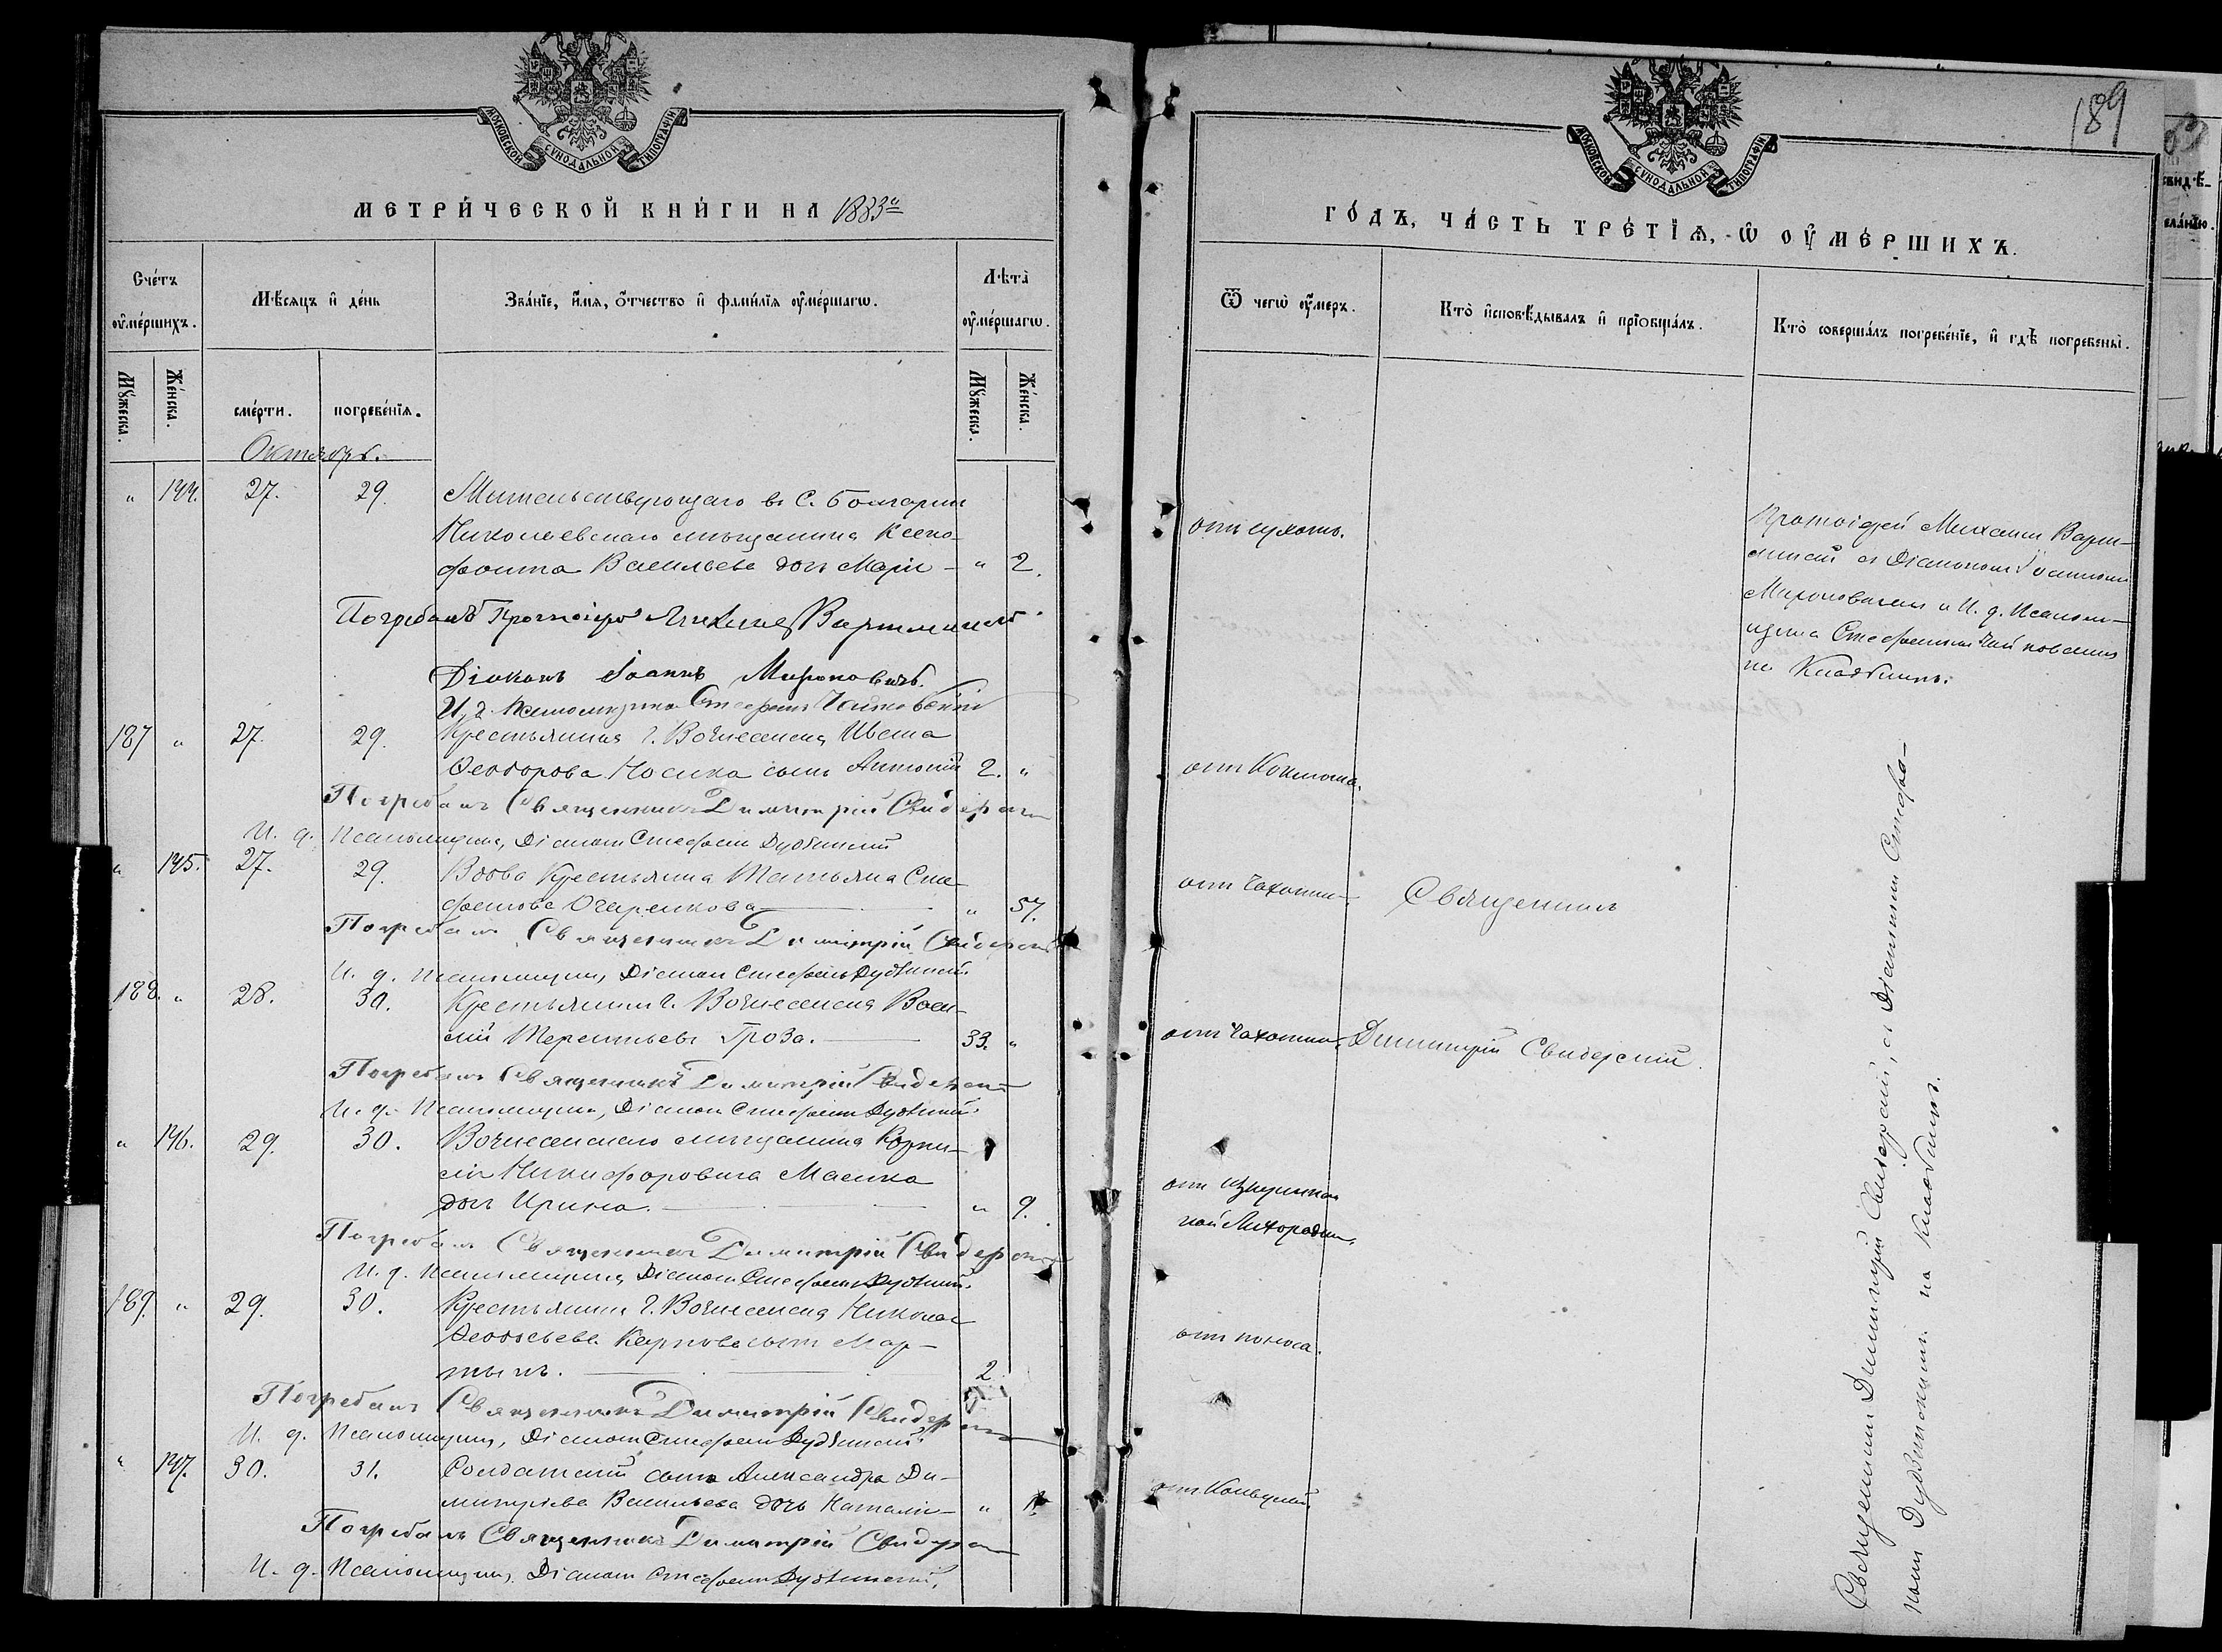 МОСКОВСКОЙ СУНОДАЛЬНОЙ ТИПОГРАФІИ
МЕТРИ́ЧЕСКОЙ КНИ́ГИ НА 1883й
Сче́тъ ᲂу҆ме́ршихъ.
Мѣ́сяцъ и҆ де́нь
Зва́нїе, и҆́мя, ѻ҆́тчество и҆ фамі́лїя ᲂу҆ме́ршагѡ.
Лѣ́та ᲂу҆ме́ршагѡ.
Мꙋ́жеска.
Же́нска.
сме́рти.
погребе́нїя.
Мꙋ́жеска.
Же́нска.
Октябрь.
" 144. 27. 29. Жительствующаго въ С. Болгарки
Николаевскаго мѣщанина Ксено-
фонта Васильева дочь Марія " 2.
Погребалъ Протоіерей Михаилъ
Діаконъ Іоаннъ Мироновичъ.
И. д. Псаломщика Стефанъ Чайковскій
187 " 27. 29. Крестьянина г. Вознесенска Ивана
Ѳеодорова Носика сынъ Антоній 2. "
Погребалъ Священникъ Димитрій Свидерскій
И. д. Псаломщика, Діаконъ Стефанъ
" 145. 27. 29. Вдова Крестьянка Татьяна Сте-
фанова Очеренкова " 57.
Погребалъ Священникъ Димитрій Свидерскій
И. д. Псаломщика, Діаконъ Стефанъ
188. " 28. 30. Крестьянинъ г. Вознесенска Васи-
лій Терентьевъ Гроза. 33. "
Погребалъ Священникъ Димитрій Свидерскій
И. д. Псаломщика, Діаконъ Стефанъ
" 146. 29. 30. Вознесенскаго мѣщанина Корни-
лія Никифоровича Масика
дочь Ирина. " 9.
Погребалъ Священникъ Димитрій Свидерскій
И. д. Псаломщика, Діаконъ Стефанъ
189. " 29. 30. Крестьянина г. Вознесенска Николая
Карпова сынъ Мар-
тынъ. 2
Погребалъ Священникъ Димитрій Свидерскій
И. д. Псаломщика, Діаконъ Стефанъ
" 147. 30. 31. Солдатскій сынъ Александра Ди-
митріева Васильева дочь Наталія "
Погребалъ Священникъ Димитрій Свидерскій
И. д. Псаломщика, Діаконъ Стефанъ
189
МОСКОВСКОЙ СУНОДАЛЬНОЙ ТИПОГРАФІИ
ГО́ДЪ, ЧА́СТЬ ТРЕ́ТЇЯ, Ѡ ОУ҆МЕ́РШИХЪ.
Ѿ чегѡ̀ ᲂу҆́меръ.
Кто̀ и҆сповѣ́дывалъ и҆ прїобща́лъ.
Кто̀ соверша́лъ погребе́нїе, и҆ гдѣ̀ погребены̀.
отъ сухоты.
Протоіерей Михаилъ
съ Діакономъ Іоанномъ
Мироновичемъ и И. д. Псалом-
щика Стефаномъ Чайковскимъ
на Кладбищѣ.
отъ Коклюша.
отъ Чахотки.
Священникъ
отъ Чахотки.
Димитрій Свидерскій.
отъ
ной Лихорадки.
отъ поноса.
отъ Конвульсій.
Священникъ Димитрій Свидерскій, съ Діакономъ Стефа-
номъ на Кладбищѣ.